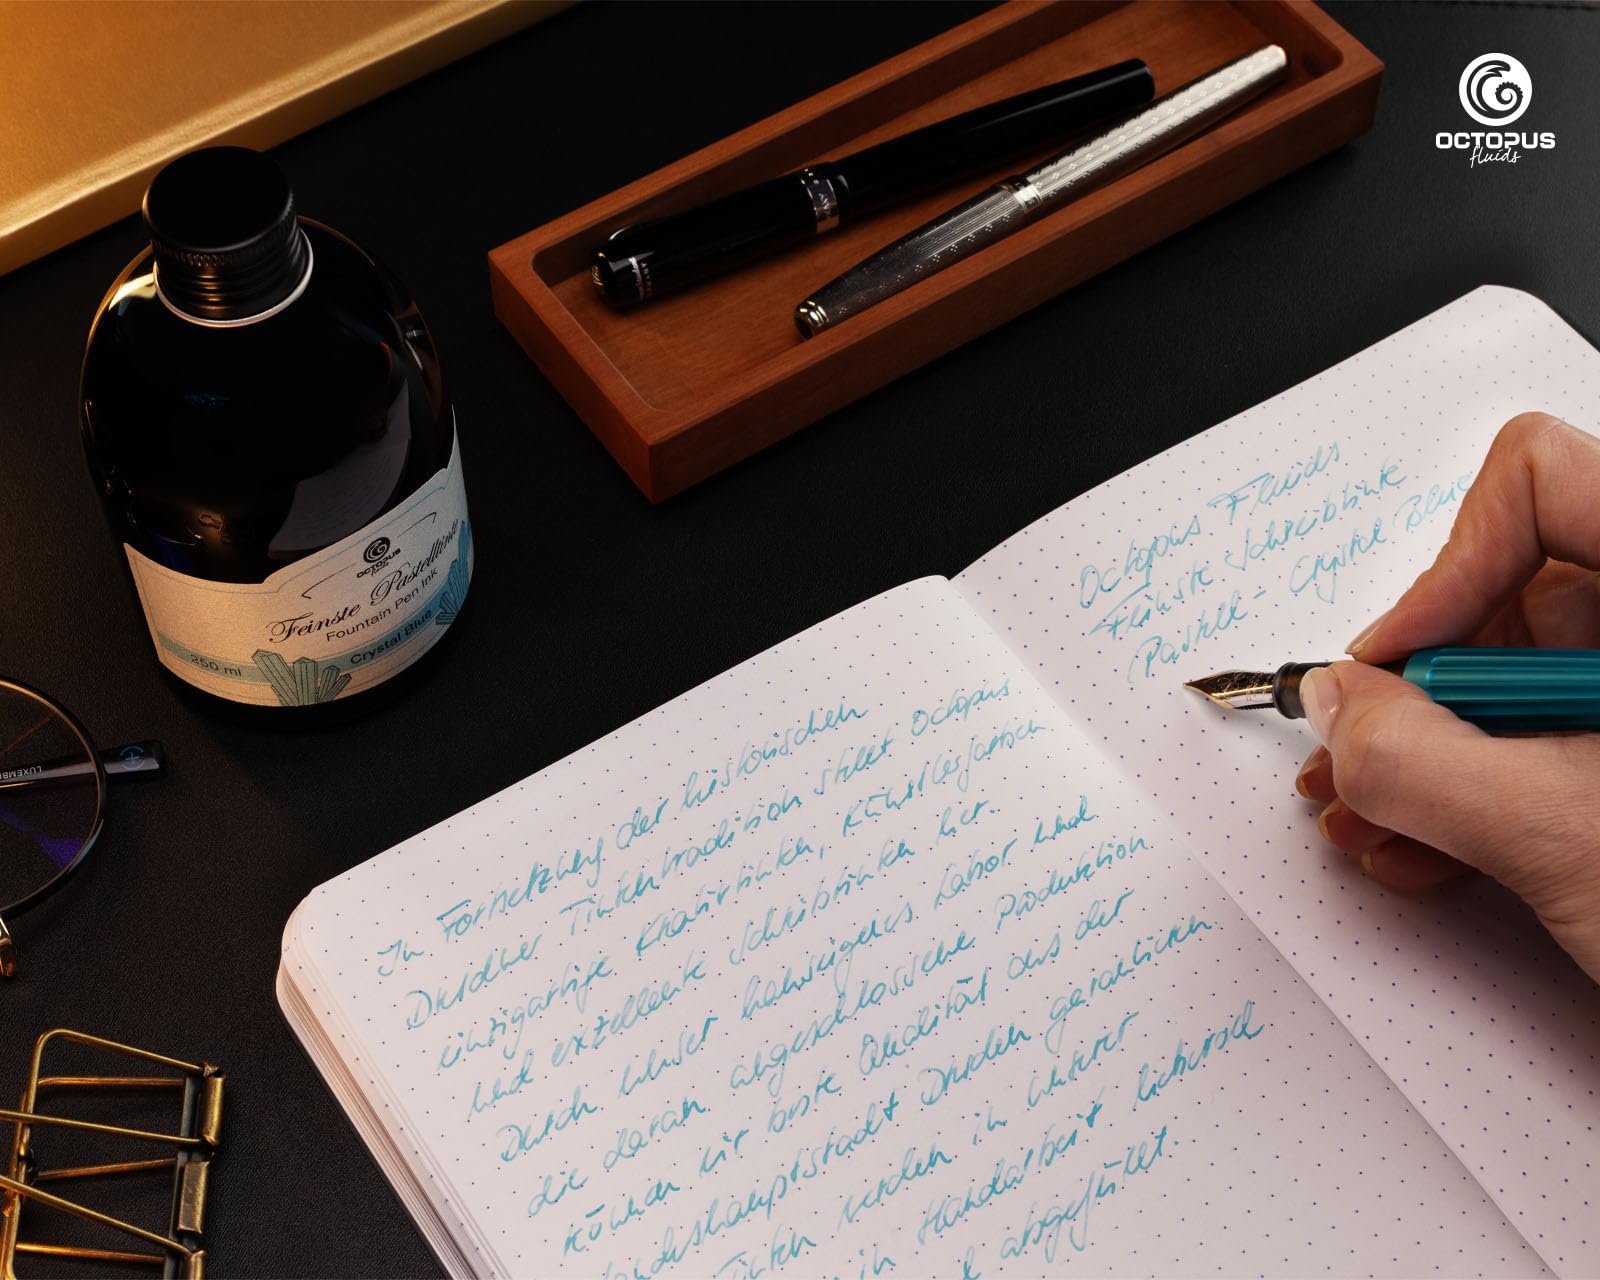 OCTOPUS
fluids
OCTOPUS
fluids
Feinste Pastelltinte
Fountain Pen Ink
250 ml
Crystal Blue
Octopus Fluids
Feinste Schreibtinte
Pastell - Crystal Blue
In Fortsetzung der historischen
Dresdner Tintentradition stellt Octopus
einzigartige Kreativtinten, Künstlerfarben
und exzellente Schreibtinten her.
Durch unser hauseigenes Labor und
die daran angeschlossene Produktion
können wir beste Qualität aus der
Landeshauptstadt Dresden garantieren.
Tinten werden in unserer
in Handarbeit liebevoll
abgefüllt.